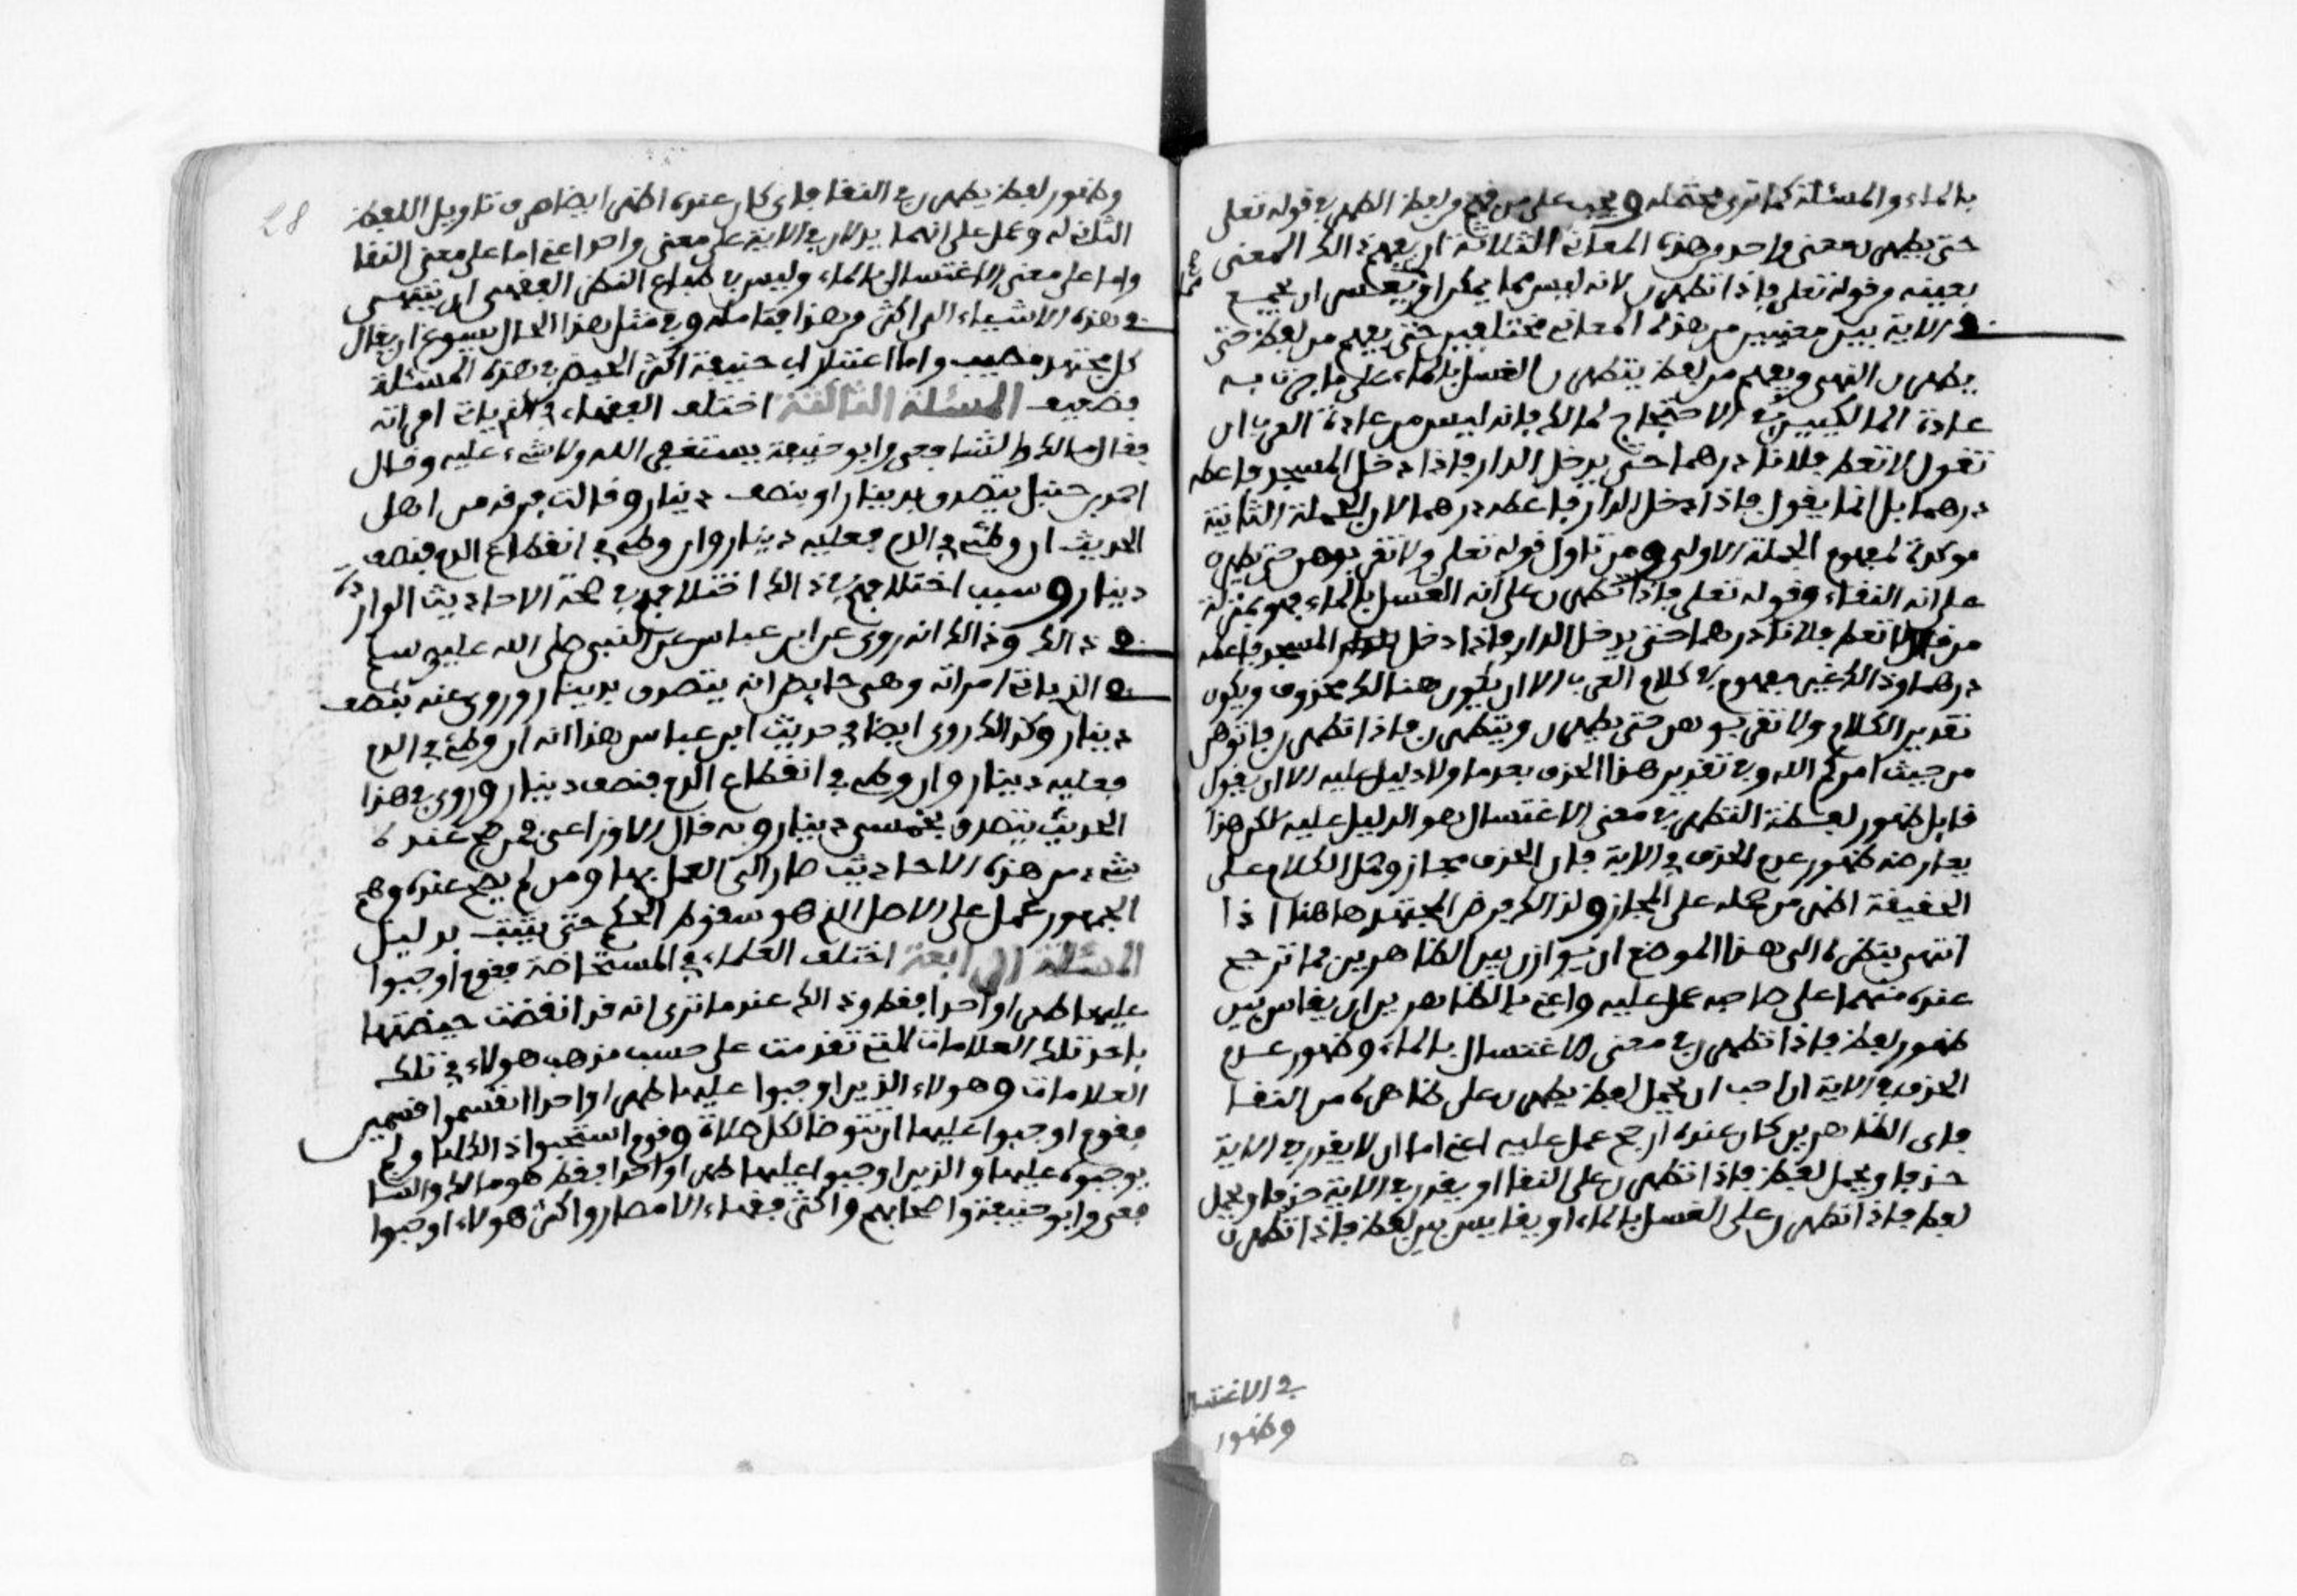 بالماء والمسئلة كما ترى محتملة ويجب على من فهم من لفظ الطهر في قوله تعلى
حتى يطهرن معنى واحد من هذه المعاني الثلاثة ان يفهم ذالك المعنى
بعينه من قوله تعلى فاذا تطهرن لانه ليس مما يمكن او يعسر ان يجمع
في الاية بين معنيين من هذه المعاني مختلفين حتى يفهم من لفظ حتى
يطهرن النقى ويفهم من لفظ يتطهرن الغسل بالماء على ما جرت به
عادة المالكيين في الاحتجاج لمالك فانه ليس من عادة العرب ان
تقول لا تعط فلانا درهما حتى يدخل الدار فاذا دخل المسجد فاعطه
درهما بل انما يقول فاذا دخل الدار فاعطه درهما لان الجملة الثانية
موكدة لمفهوم الجملة الاولى ومن تاول قوله تعلى ولا تقربوهن حتى يطهرن
على انه النقاء وقوله تعلى فاذا تطهرن على انه الغسل بالماء فهو بمنزلة
من قال لا تعط فلانا درهما حتى يدخل الدار فاذا دخل المسجد فاعطه
درهما وذالك غير مفهوم في كلام العرب الا ان يكون هنالك محذوف ويكون
تقدير الكلام ولا تقربوهن حتى يطهرن ويتطهرن فاذا تطهرن فاتوهن
من حيث امركم الله وفي تقدير هذا الحذف بعد ما ولا دليل عليه الا ان يقول
قايل ظهور لفظة التطهر في معنى الاغتسال هو الدليل عليه لكن هذا
يعارضه ظهور عدم الحذف في الاية فان الحذف مجاز وحمل الكلام على
الحقيقة اظهر من حمله على المجاز ولذالك فرض المجتهد هاهنا اذا
انتهى بنظره الى هذا الموضع ان يوازن بين الظاهرين فما ترجح
عنده منهما على صاحبه عمل عليه واعني بالظاهرين ان يقايس بين
ظهور لفظ فاذا تطهرن في معنى الاغتسال بالماء وظهور عدم
الحذف في الاية ان احب ان يحمل لفظ يطهرن على ظاهره من النقا
فاى الظاهرين كان عنده ارجح عمل عليه اعني اما ان لا يقدر في الاية
حذفا ويحمل لفظ فاذا تطهرن على النقا او يقدر في الاية حذفا ويحمل
لفظ فاذا تطهرن على الغسل بالماء او يقايس بين لفظ فاذا تطهرن
في الاغتسال
وظهور
28
وظهور لفظ يطهرن في النقا فاى كان عنده اظهر ايضا صرف تاويل اللفظ
الثاني له وعمل على انهما يدلان في الاية على معنى واحد اعني اما على معنى النقا
واما على معنى الاغتسال بالماء وليس في طباع النظر الفقهى ان ينتهى
في هذه الاشياء الى اكثر من هذا فتامله وفي مثل هذا الحال يسوغ ان يقال
كل مجتهد مصيب واما اعتبار ابي حنيفة اكثر الحيض في هذه المسئلة
فضعيف المسئلة الثالثة اختلف الفقهاء في الذي ياتي امراته
فقال مالك والشافعي وابو حنيفة يستغفر الله ولا شيء عليه وقال
احمد بن حنبل يتصدق بدينار او بنصف دينار وقالت فرقة من اهل
الحديث ان وطئ في الدم فعليه دينار وان وطئ في انقطاع الدم فنصف
دينار وسبب اختلافهم في ذالك اختلافهم في صحة الاحاديث الواردة
في ذالك وذالك انه روى عن ابن عباس عن النبى صلى الله عليه وسلم
في الذي ياتي امراته وهى حايض انه يتصدق بدينار وروى عنه بنصف
دينار وكذالك روى ايضا في حديث ابن عباس هذا انه ان وطئ في الدم
فعليه دينار وان وطئ في انقطاع الدم فنصف دينار وروى في هذا
الحديث يتصدق بخمسى دينار وبه قال الاوزاعى فمن صح عنده
شيء من هذه الاحاديث صار الى العمل بها ومن لم يصح عنده وهم
الجمهور عمل على الاصل الذي هو سقوط الحكم حتى يثبت بدليل
المسئلة الرابعة اختلف العلماء في المستحاضة فقوم اوجبوا
عليها طهرا واحدا فقط وذالك عندما ترى انه قد انقضت حيضتها
باحد تلك العلامات التي تقدمت على حسب مذهب هولاء في تلك
العلامات وهولاء الذين اوجبوا عليها طهرا واحدا انقسموا قسمين
فقوم اوجبوا عليها ان تتوضا لكل صلاة وقوم استحبوا ذالك لها ولم
يوجبوه عليها والذين اوجبوا عليها طهرا واحدا فقط هو مالك والشا
فعي وابو حنيفة واصحابهم واكثر فقهاء الامصار واكثر هولاء اوجبوا